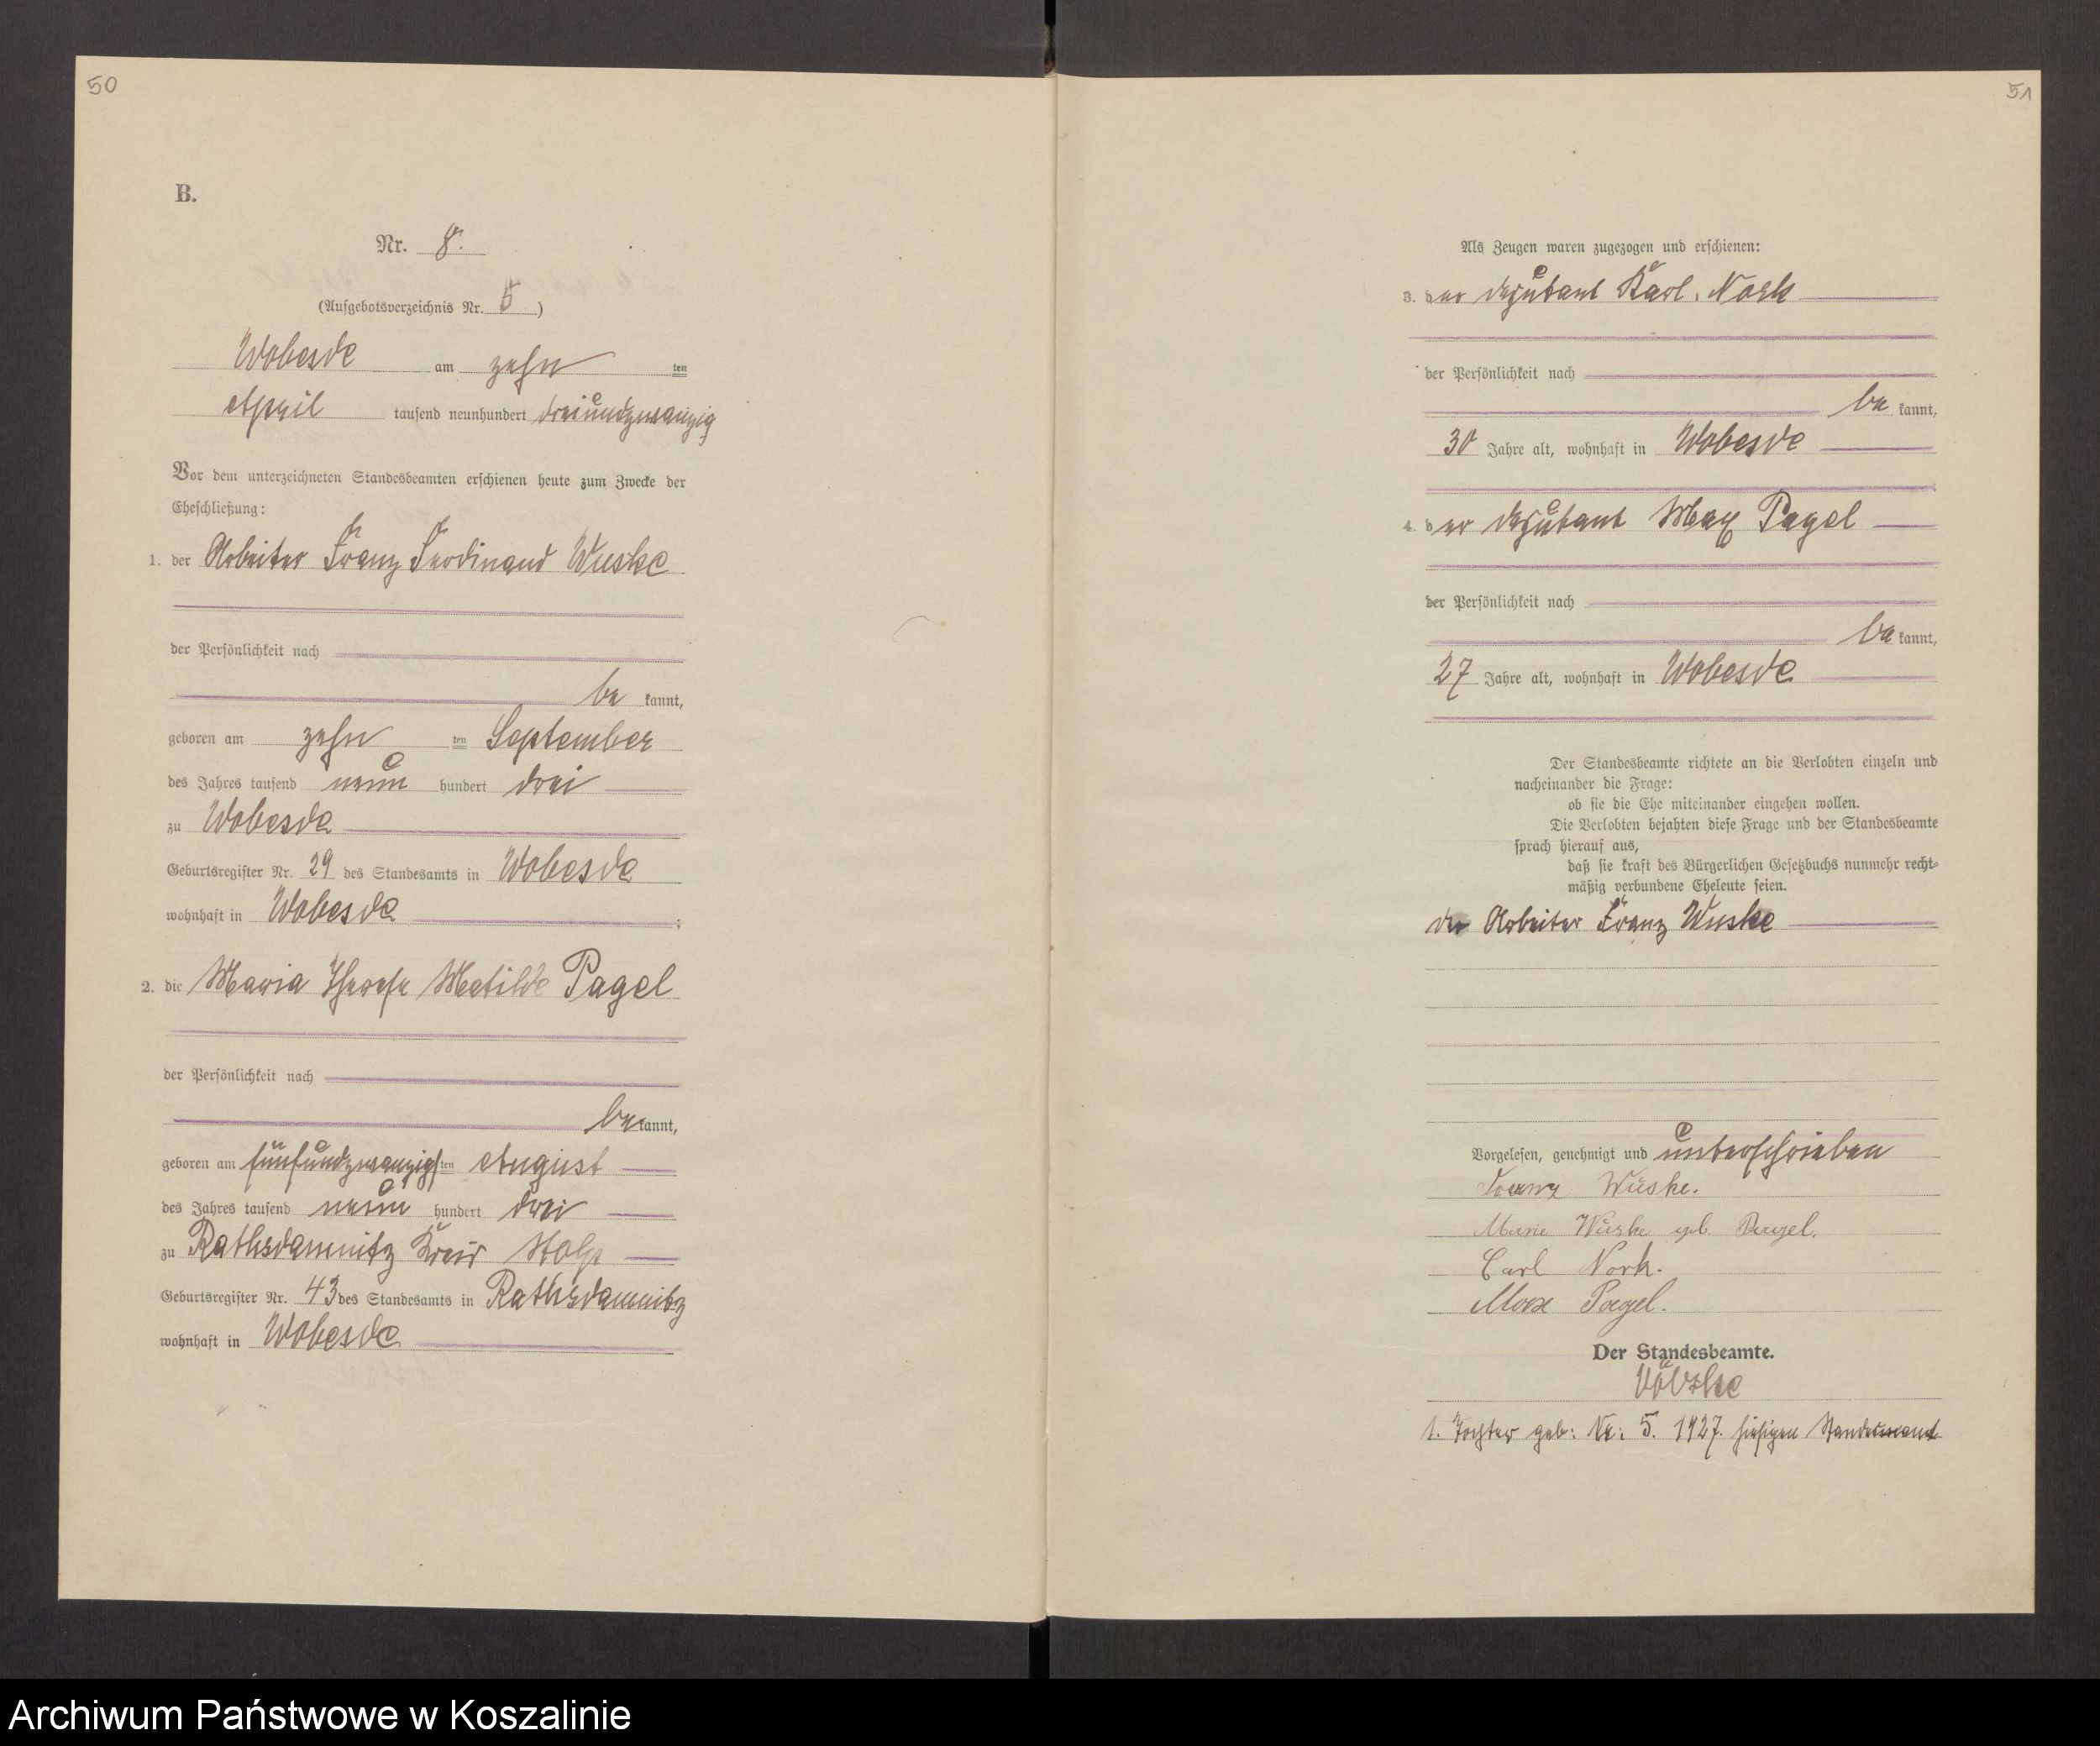 50
B.
Nr. 8.
(Aufgebotsverzeichnis Nr. 5)
Wobesde am zehn ten
April tausend neunhundert dreiundzwanzig
Vor dem unterzeichneten Standesbeamten erschienen heute zum Zwecke der
Eheschließung:
1. der Arbeiter Franz Ferdinand Wuske
der Persönlichkeit nach
be kannt,
geboren am zehn ten September
des Jahres tausend neun hundert drei
zu Wobesde
Geburtsregister Nr. 29 des Standesamts in Wobesde
wohnhaft in Wobesde ;
2. die Maria Therese Matilde Pagel
der Persönlichkeit nach
be kannt,
geboren am fünfundzwanzigsten August
des Jahres tausend neun hundert drei
zu Rathsdamnitz Kreis Stolp
Geburtsregister Nr. 43 des Standesamts in Rathsdamnitz
wohnhaft in Wobesde
51
Als Zeugen waren zugezogen und erschienen:
3. der Deputant Karl Nork
der Persönlichkeit nach
be kannt,
30 Jahre alt, wohnhaft in Wobesde
4. der Deputant Max Pagel
der Persönlichkeit nach
be kannt,
27 Jahre alt, wohnhaft in Wobesde
Der Standesbeamte richtete an die Verlobten einzeln und
nacheinander die Frage:
ob sie die Ehe miteinander eingehen wollen.
Die Verlobten bejahten diese Frage und der Standesbeamte
sprach hierauf aus,
daß sie kraft des Bürgerlichen Gesetzbuchs nunmehr recht-
mäßig verbundene Eheleute seien.
der Arbeiter Franz Wuske
Vorgelesen, genehmigt und unterschrieben
Franz Wuske.
Marie Wuske geb. Pagel.
Carl Nork.
Max Pagel.
Der Standesbeamte.
Völzke
1. Tochter geb: Nr: 5. 1927. hiesigen Standesamt
Archiwum Państwowe w Koszalinie